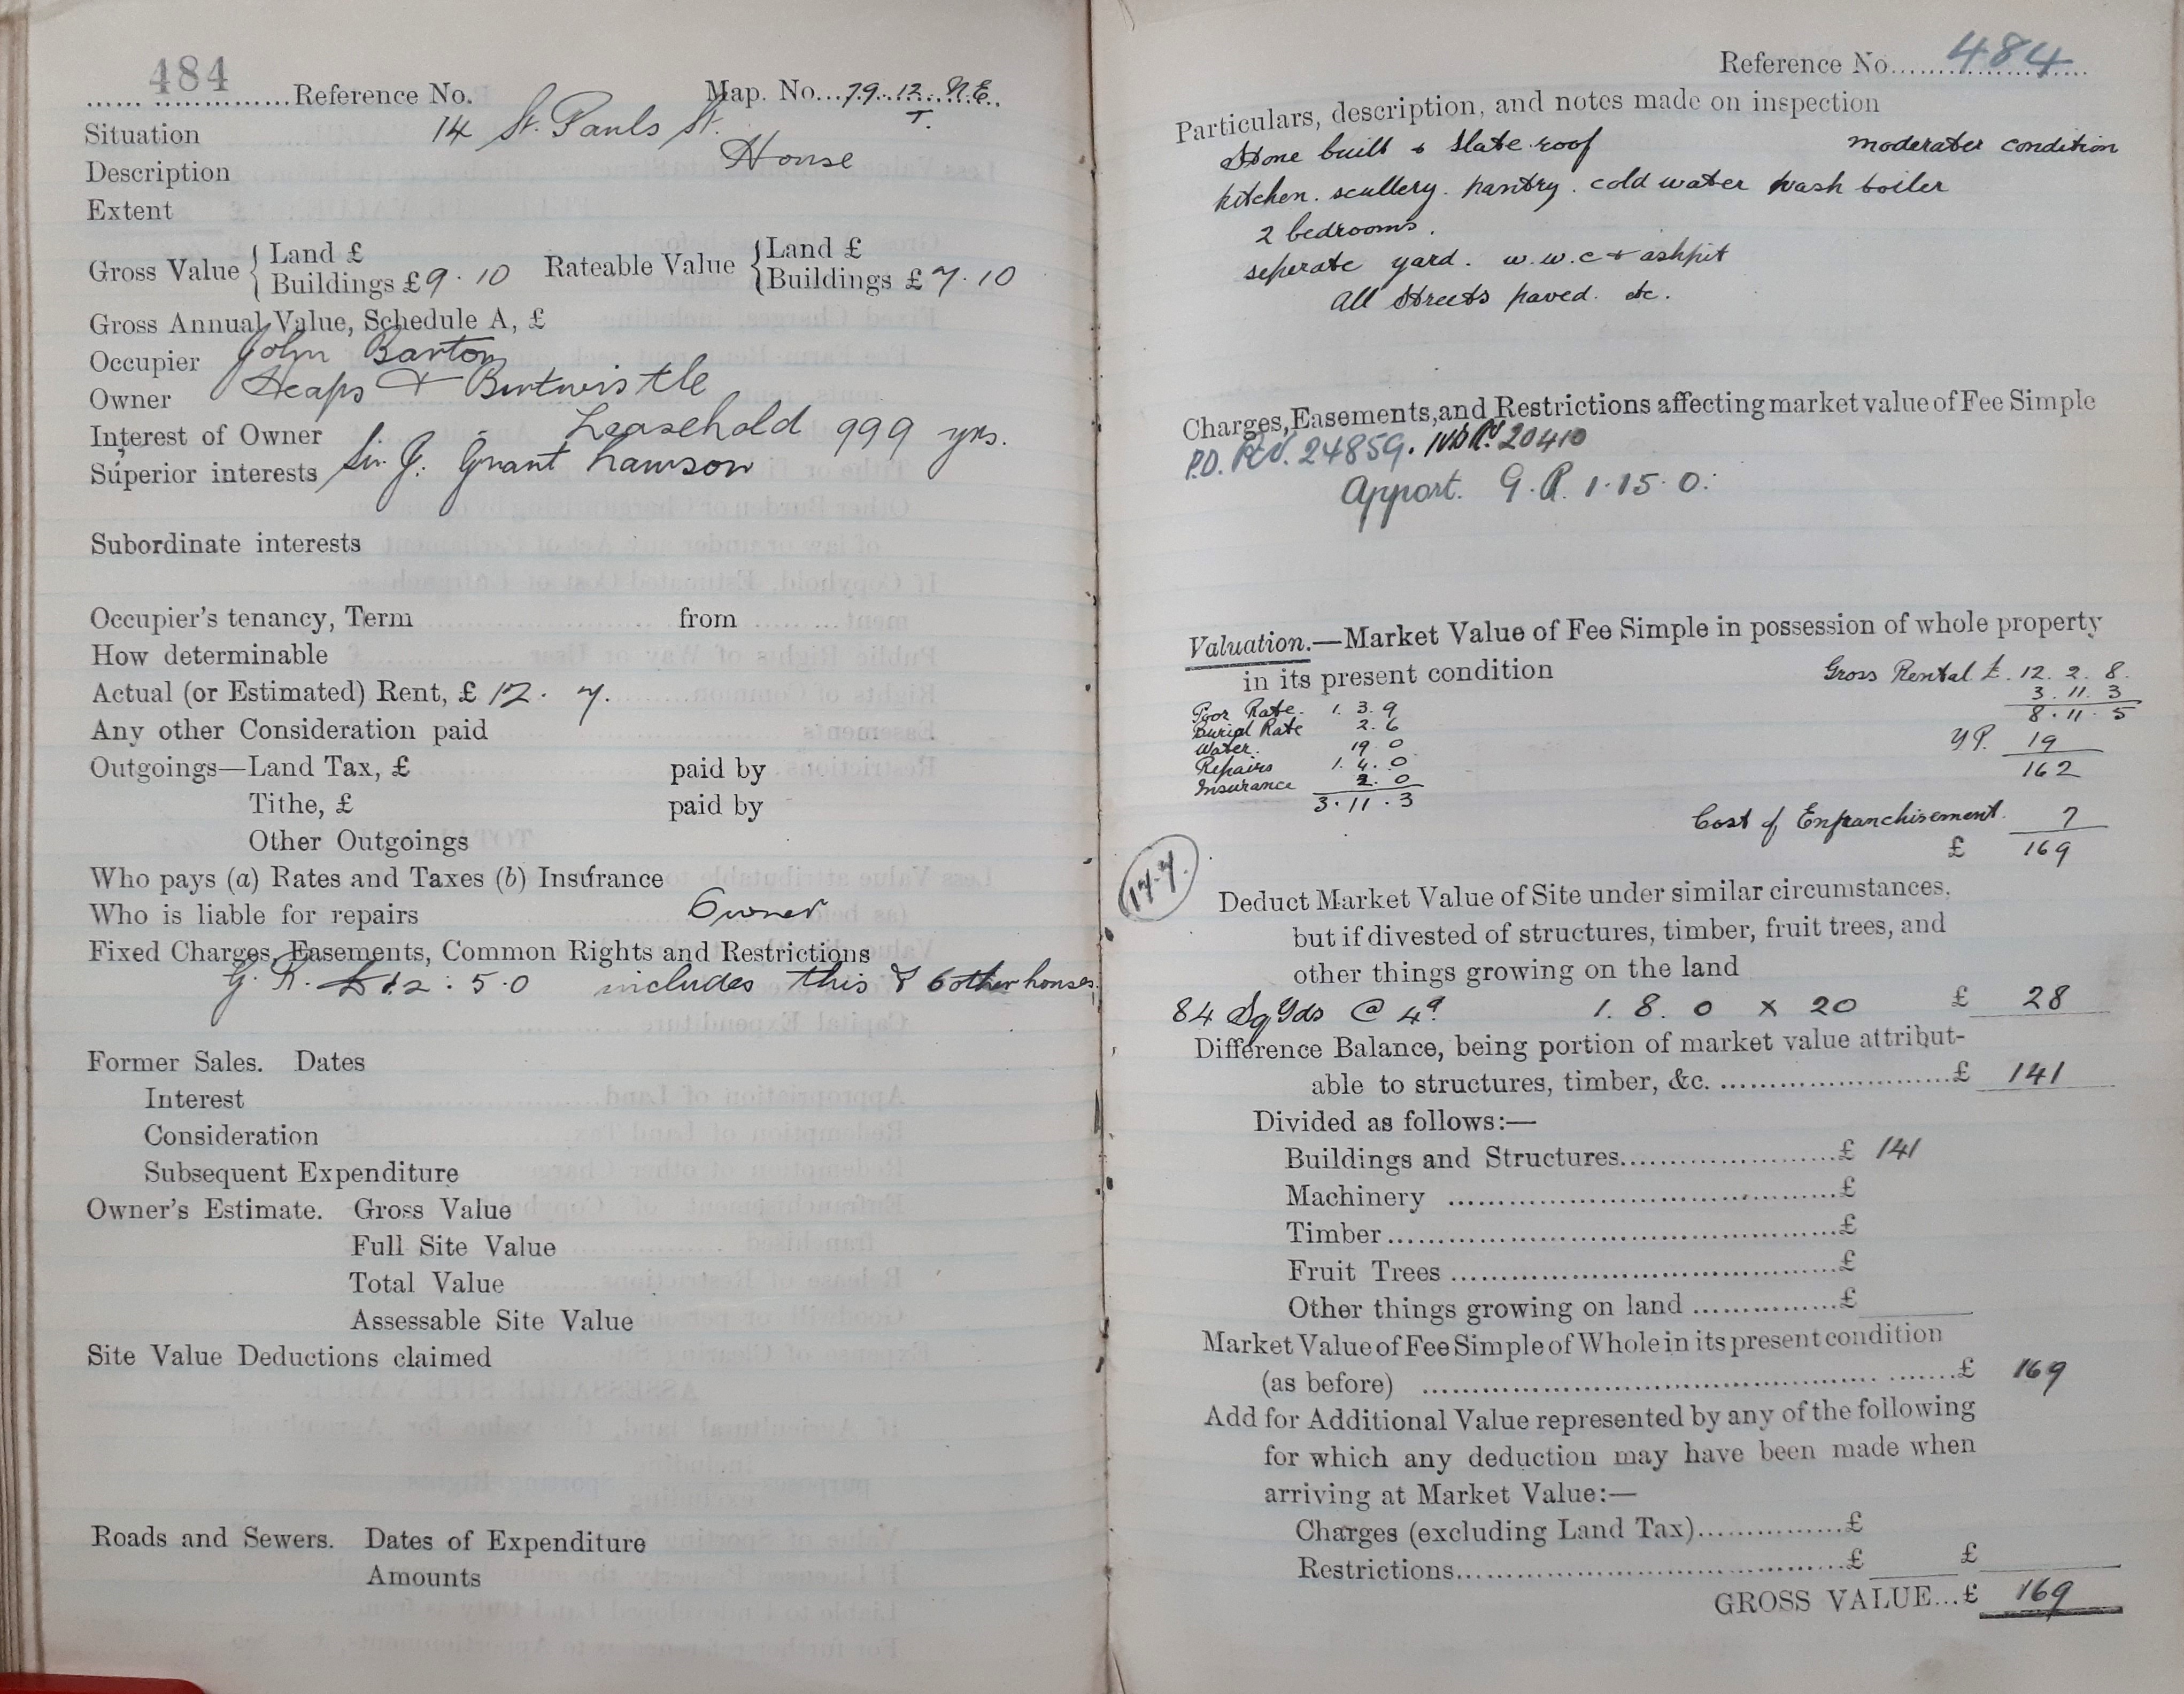 484
Reference No. Map. No. 79. 12. N.E.
T.
Situation 14 St. Pauls St.
Description House
Extent
Gross Value { Land £ Rateable Value { Land £
Buildings £ 9 . 10 Buildings £ 7 . 10
Gross Annual Value, Schedule A, £
Occupier John Barton
Owner Heaps & Birtwistle
Interest of Owner Leasehold 999 yrs.
Superior interests Sir J. Grant Lawson
Subordinate interests
Occupier's tenancy, Term from
How determinable
Actual (or Estimated) Rent, £ 12 . 7.
Any other Consideration paid
Outgoings—Land Tax, £ paid by
Tithe, £ paid by
Other Outgoings
Who pays (a) Rates and Taxes (b) Insurance
Who is liable for repairs Owner
Fixed Charges, Easements, Common Rights and Restrictions
G. R. £12 : 5.0 includes this & 6 other houses.
Former Sales. Dates
Interest
Consideration
Subsequent Expenditure
Owner's Estimate. Gross Value
Full Site Value
Total Value
Assessable Site Value
Site Value Deductions claimed
Roads and Sewers. Dates of Expenditure
Amounts
Reference No. 484
Particulars, description, and notes made on inspection
Stone built & Slate roof moderater condition
kitchen. scullery. pantry. cold water wash boiler
2 bedrooms.
seperate yard. w.w.c & ashpit
all Streets paved. etc.
Charges, Easements, and Restrictions affecting market value of Fee Simple
P.D. REV. 24859. 20410
Apport. G.R. 1.15.0.
Valuation.—Market Value of Fee Simple in possession of whole property
in its present condition Gross Rental £. 12. 2. 8.
3. 11. 3
Poor Rate. 1. 3. 9 8. 11. 5
Burial Rate 2. 6
Water. 19. 0 Y.P. 19
Repairs 1. 4. 0 162
Insurance 2. 0
3. 11. 3
Cost of Enfranchisement. 7
£ 169
17.7.
Deduct Market Value of Site under similar circumstances,
but if divested of structures, timber, fruit trees, and
other things growing on the land
84 Sq Yds @ 4d 1. 8. 0 x 20 £ 28
Difference Balance, being portion of market value attribut-
able to structures, timber, &c. £ 141
Divided as follows:—
Buildings and Structures £ 141
Machinery £
Timber £
Fruit Trees £
Other things growing on land £
Market Value of Fee Simple of Whole in its present condition
(as before) £ 169
Add for Additional Value represented by any of the following
for which any deduction may have been made when
arriving at Market Value:—
Charges (excluding Land Tax) £
Restrictions £ £
GROSS VALUE... £ 169